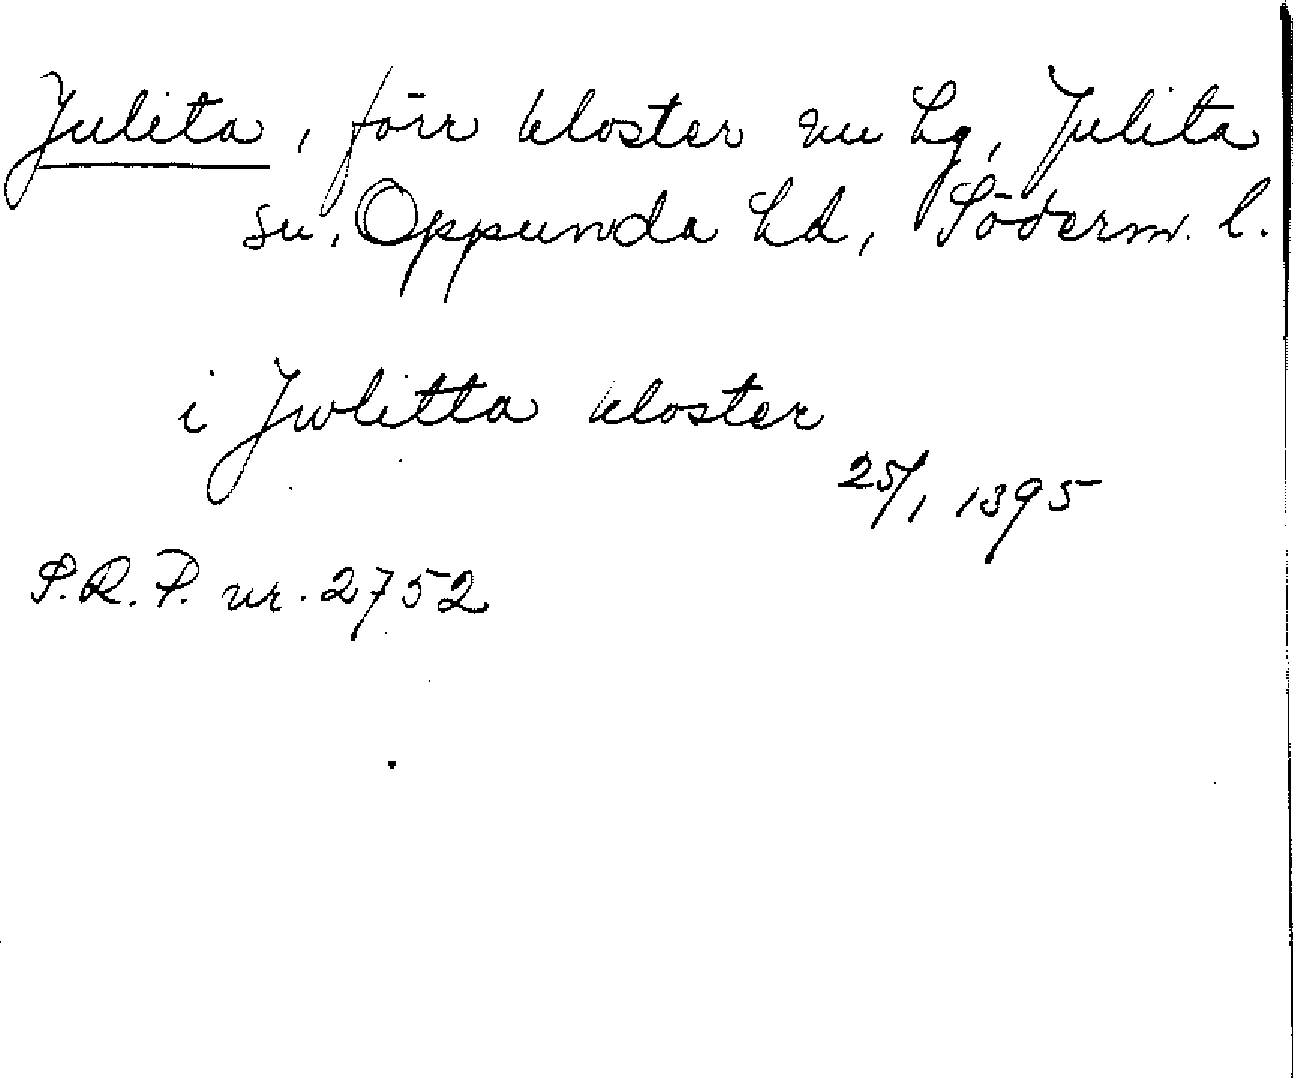 Julita, förr kloster nu hg, Julita
sn, Oppunda hd, Söderm. l.
i Jwlitta kloster
25/1 1395
S.R.P. nr. 2752